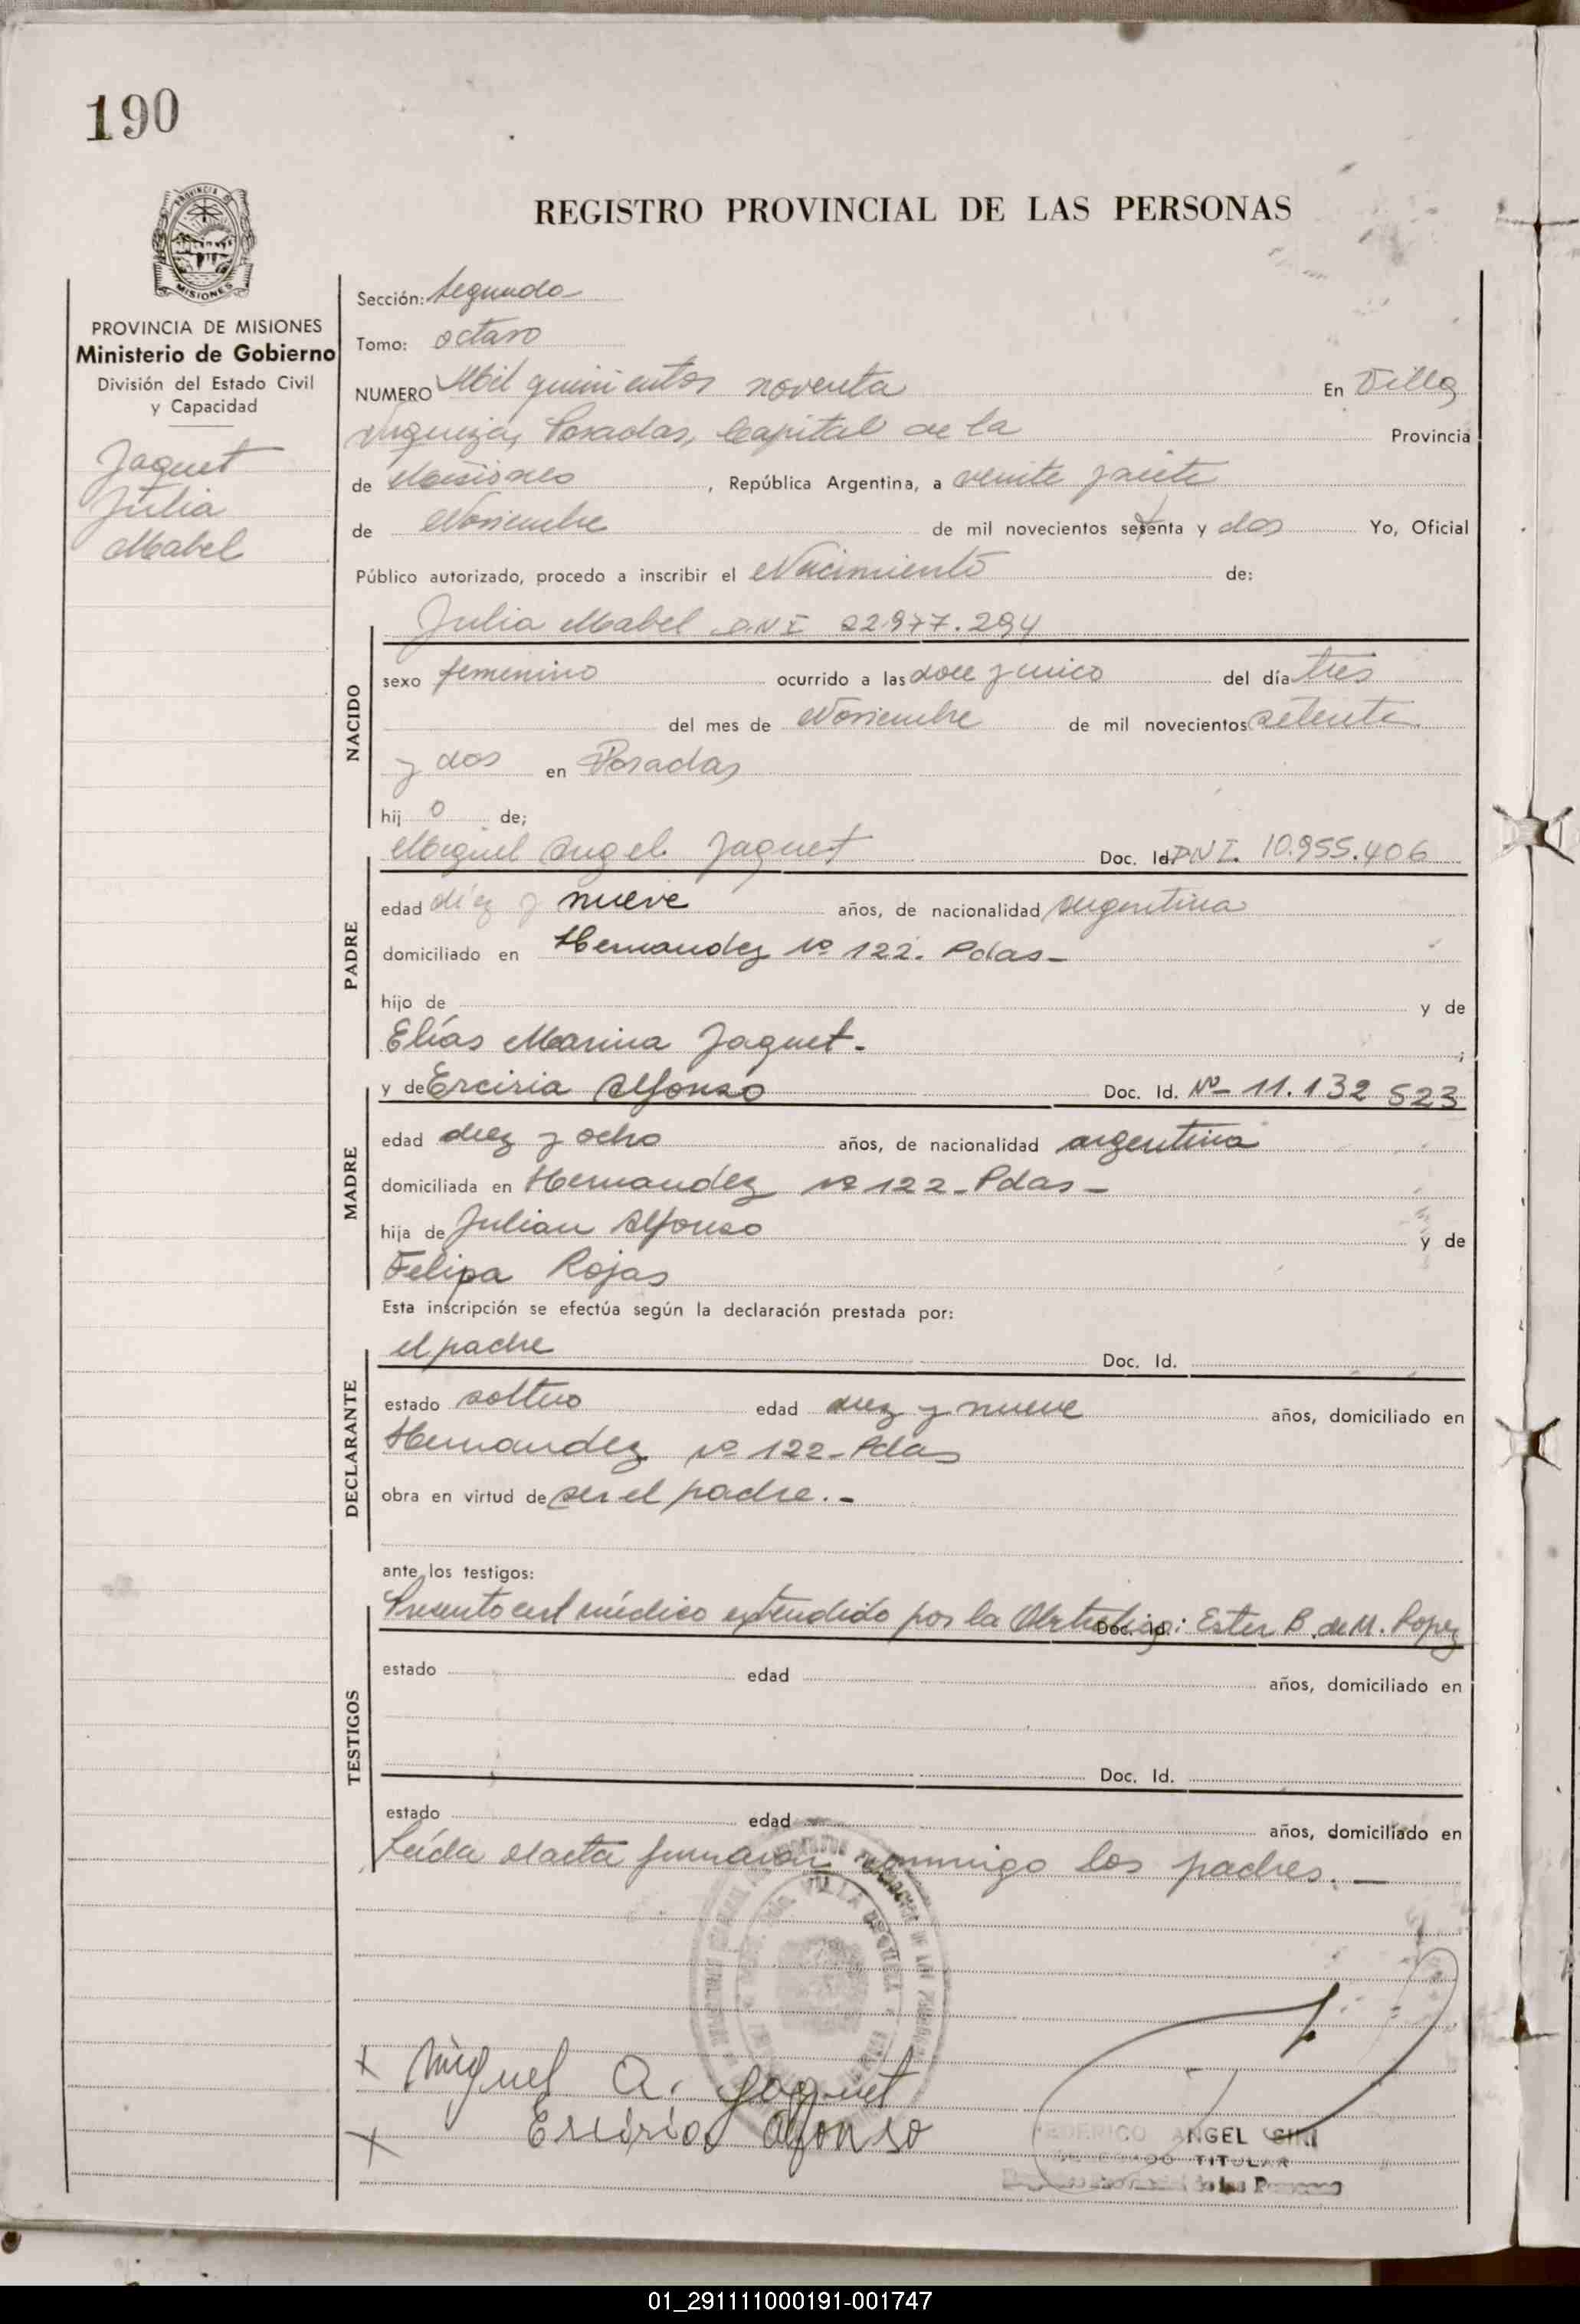 190
REGISTRO PROVINCIAL DE LAS PERSONAS
MISIONES
PROVINCIA DE MISIONES
Ministerio de Gobierno
División del Estado Civil
y Capacidad
Jaquet
Julia
Mabel
Sección: Segunda
Tomo: octavo
NUMERO Mil quinientos noventa En Villa
Urquiza, Posadas, Capital de la Provincia
de Misiones , República Argentina, a veinte y siete
de Noviembre de mil novecientos setenta y dos Yo, Oficial
Público autorizado, procedo a inscribir el Nacimiento de:
Julia Mabel D.N.I 22.977.294
NACIDO
sexo femenino ocurrido a las doce y cinco del día tres
del mes de Noviembre de mil novecientos setenta
y dos en Posadas
hij o de;
Miguel Angel Jaquet Doc. Id. D.N.I. 10.955.406
PADRE
edad diez y nueve años, de nacionalidad argentina
domiciliado en Hernandez Nº 122. Pdas-
hijo de y de
Elías Marina Jaquet.- ;
y de Erciria Alfonso Doc. Id. Nº- 11.132 523
MADRE
edad diez y ocho años, de nacionalidad argentina
domiciliada en Hernandez Nº 122-Pdas-
hija de Julian Alfonso y de
Felipa Rojas
Esta inscripción se efectúa según la declaración prestada por:
el padre Doc. Id.
DECLARANTE
estado soltero edad diez y nueve años, domiciliado en
Hernandez Nº 122-Pdas
obra en virtud de ser el padre.-
ante los testigos:
Presento cert médico extendido por la Obstetriz: Ester B. de M. Lopez
Doc. Id.
TESTIGOS
estado edad años, domiciliado en
Doc. Id.
estado edad años, domiciliado en
Leída el acta firmaron conmigo los padres.-
VILLA URQUIZA
x Miguel A. Jaquet
x Erciria Alfonso
ANGEL
TITULAR
01_291111000191-001747